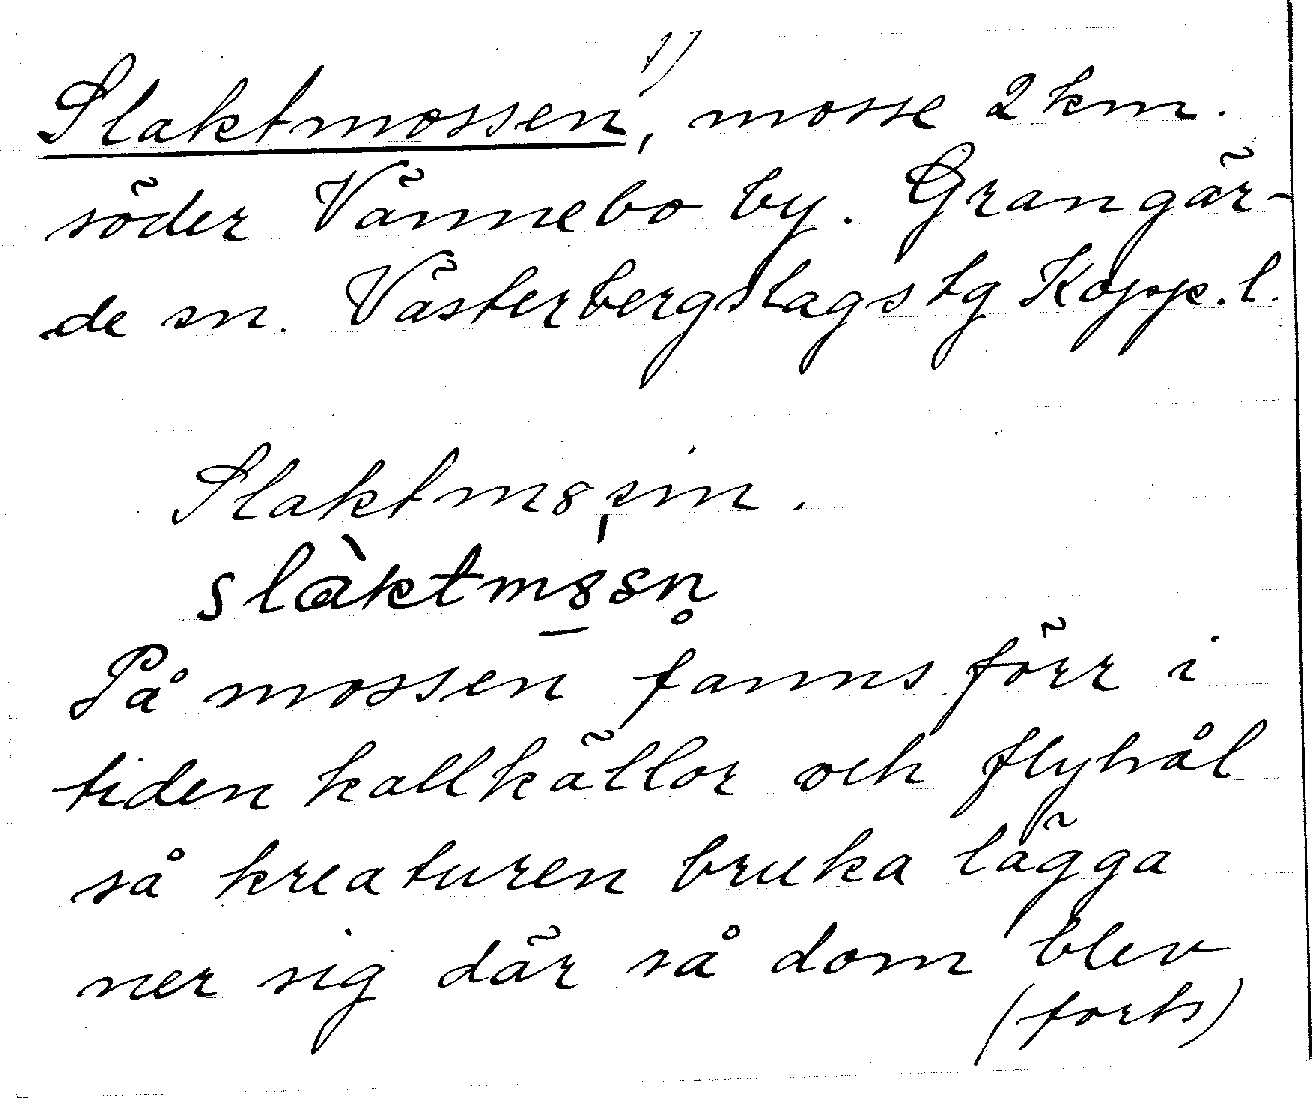 Slaktmossen, 1) mosse 2 km.
söder Vännebo by. Grangär-
de sn. Västerbergslags tg Kopp. l.
Slaktm8sin.
slàktm8sn
På mossen fanns förr i
tiden kallkällor och flyhål
så kreaturen bruka lägga
ner sig där så dom blev
(forts)